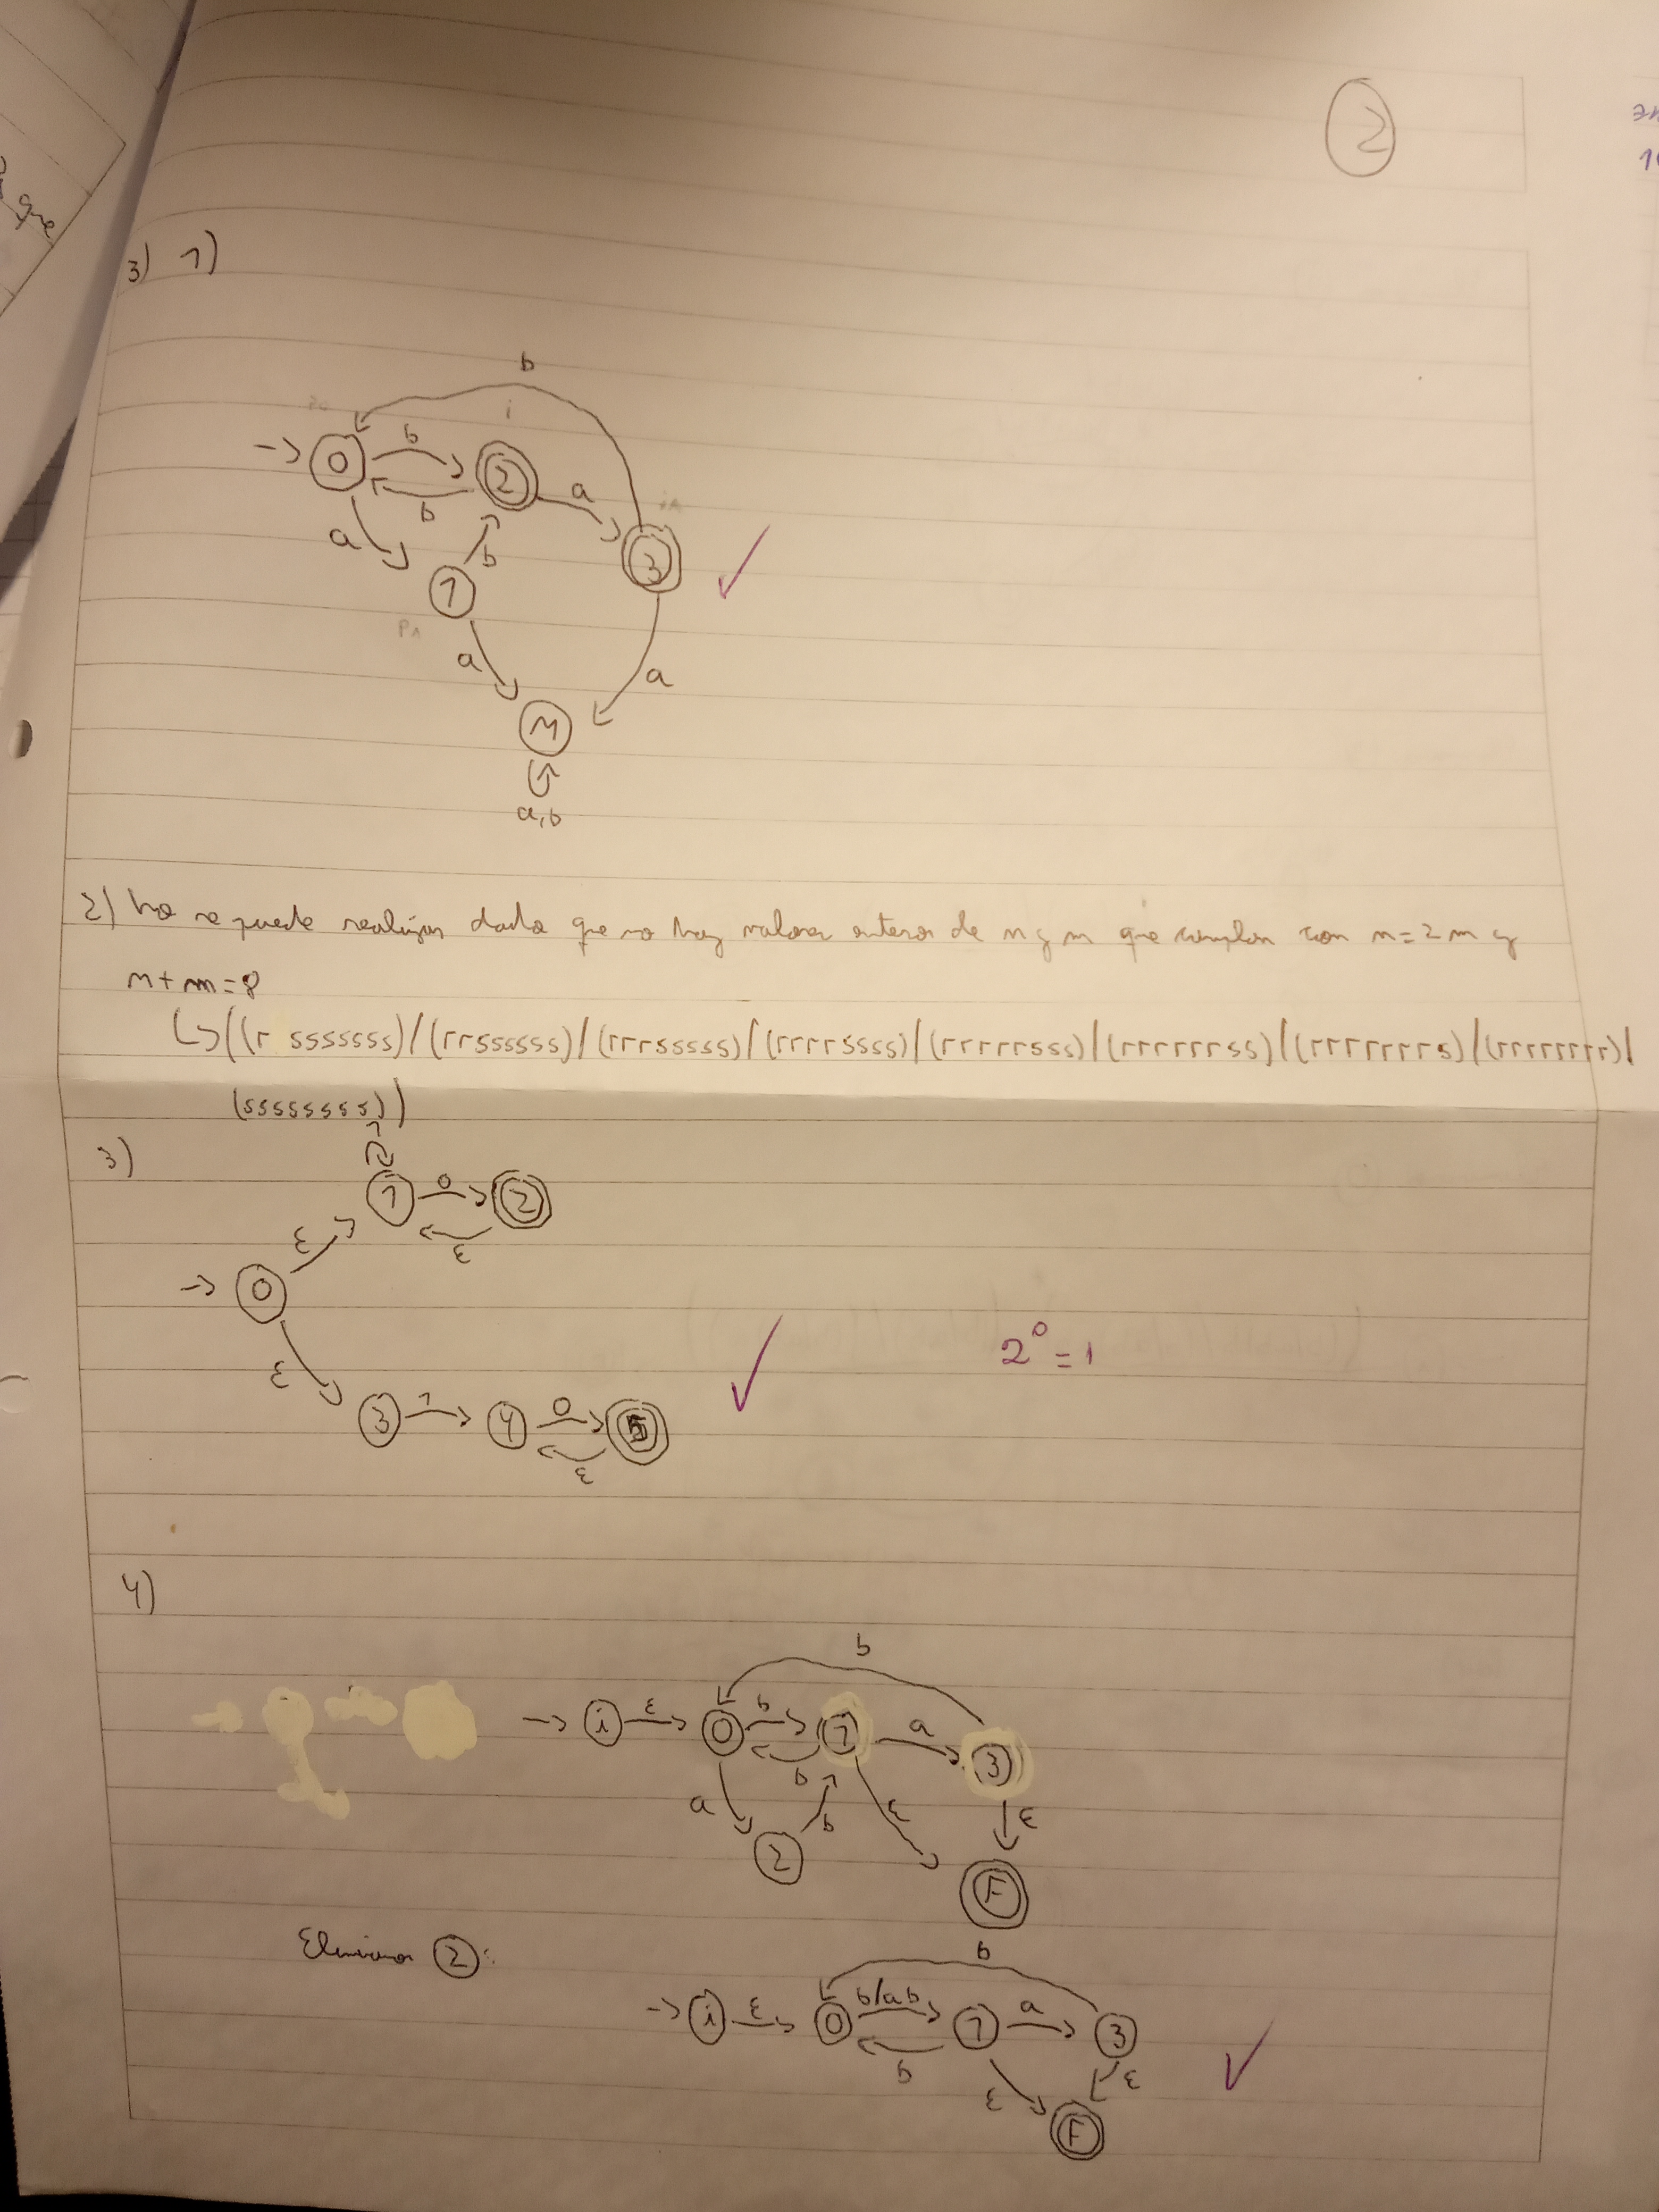 2
3) 1)
b
i
→ 0 b 2 a 3
b
a b
1
P1
a a
M
a,b
2) No se puede realizar dado que no hay valores enteros de n y m que cumplan con n=2m y
n+m=8
↳((r sssssss)/(rrssssss)/(rrrsssss)/(rrrrssss)/(rrrrrsss)/(rrrrrrss)/(rrrrrrrs)/(rrrrrrrr)/
(ssssssss))
3)
1
1 0 2
ε ε
→ 0
2⁰=1
ε
3 1 4 0 5
ε
4)
b
→ i ε 0 b 1 a 3
b
a b ε ε
2
F
2:
b
→ i ε 0 b/ab 1 a 3
b ε ε
F